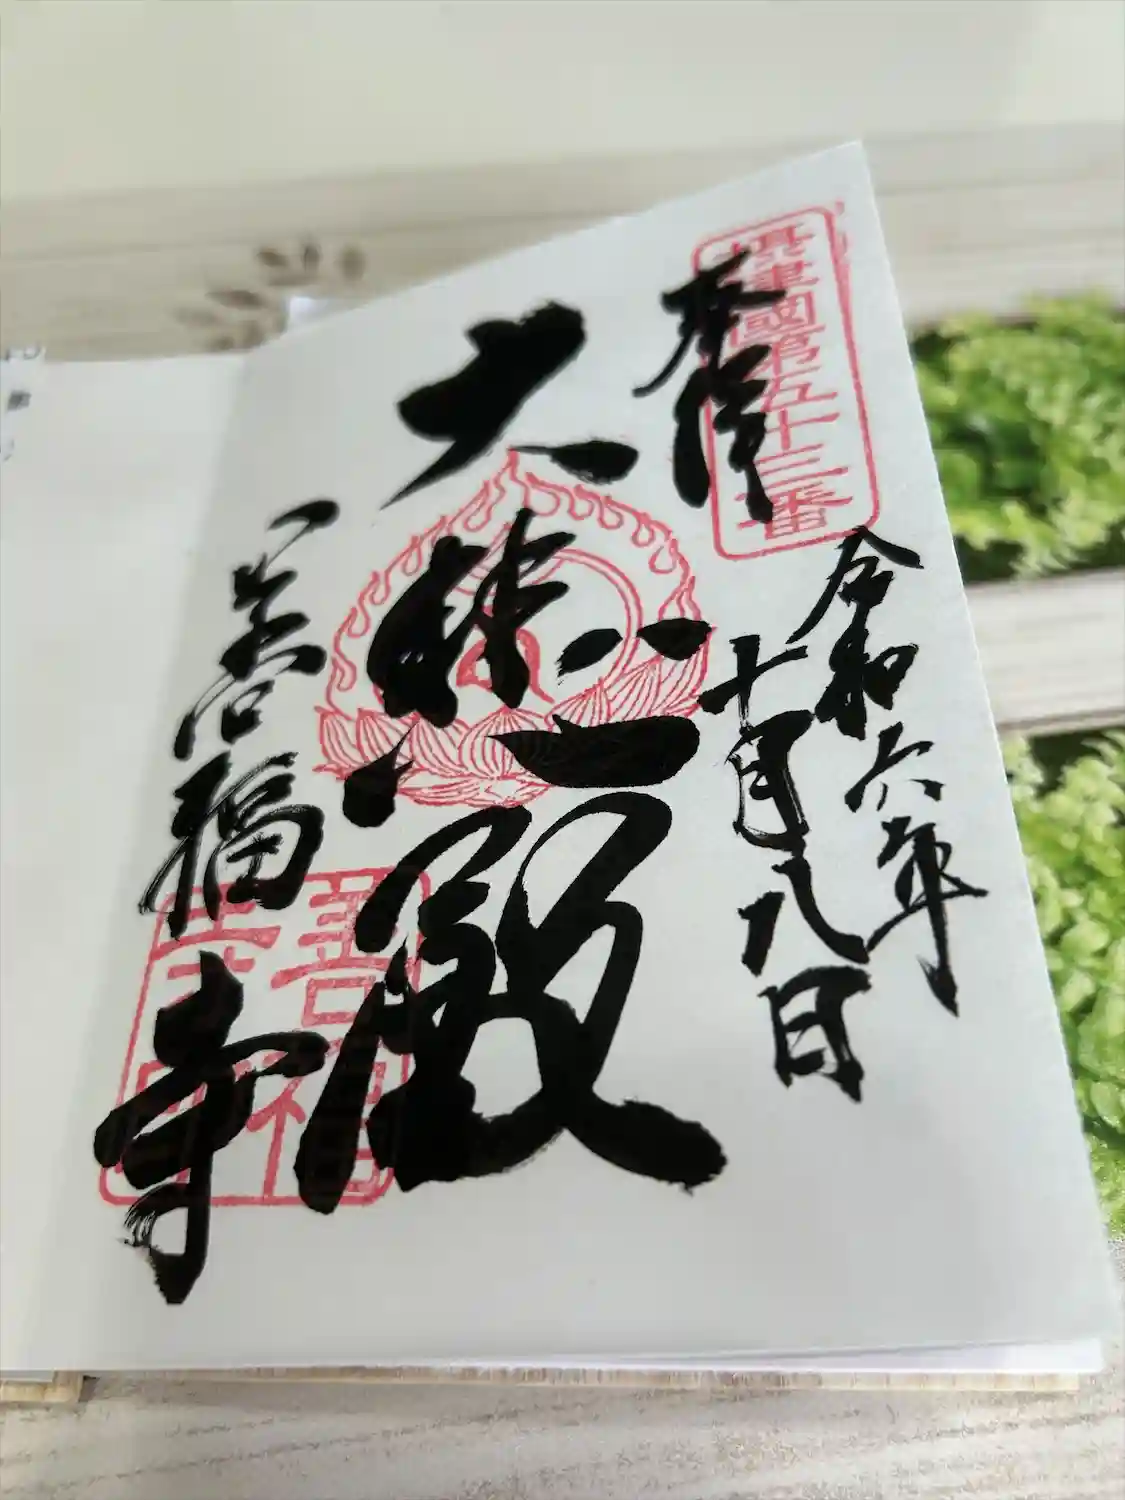 摂津國第五十三番
奉拝
令和六年
十月八日
大悲殿
善福寺
善福